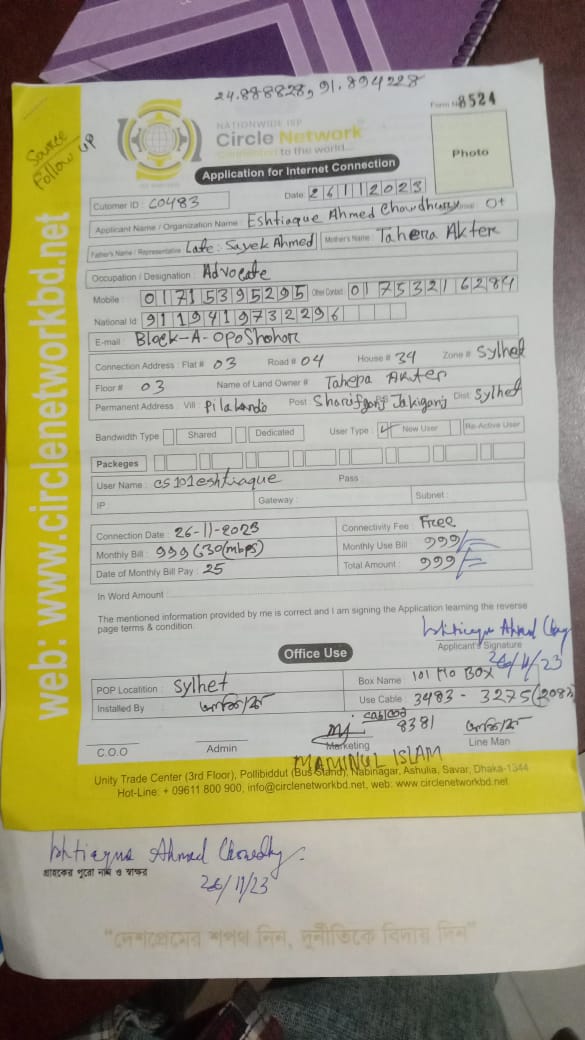 24.888828, 91.894228
Form No 8524
Source
Follow UP
NATIONWIDE ISP
Circle Network
Connected to the world...
Photo
Application for Internet Connection
Cutomer ID : C0483
Date: 26112023
Applicant Name / Organization Name : Eshtiaque Ahmed Chowdhury 0+
Father's Name / Representative Late: Sayek Ahmed Mother's Name Tahera Akter
Occupation / Designation : Advocate
Mobile : 01715395295 Other Contact 01753216284
National Id: 9119419732296
E-mail Block-A-Oposhohor
Connection Address : Flat # 03 Road # 04 House # 34 Zone # Sylhet
Floor # 03 Name of Land Owner # Tahera Akter
Permanent Address : Vill : Pilakandi Post Sharifgonj Jakigonj Dist: Sylhet
Bandwidth Type Shared Dedicated User Type : New User Re-Active User
Packeges
User Name : cs101eshtiaque Pass :
IP Gateway : Subnet :
Connection Date : 26-11-2023 Connectivity Fee : Free
Monthly Bill : 999 (30(mbps) Monthly Use Bill : 999/=
Date of Monthly Bill Pay : 25 Total Amount : 999/=
In Word Amount :
The mentioned information provided by me is correct and I am signing the Application learning the reverse
page terms & condition.
Ishtiaque Ahmed
Applicant's Signature
26/11/23
Office Use
POP Locatition : Sylhet Box Name : 101 No BOX
Installed By Use Cable : 3483 - 3275 (208)
8381
C.O.O Admin Marketing Line Man
MAMINUL ISLAM
Unity Trade Center (3rd Floor), Pollibiddut (Bus Stand), Nabinagar, Ashulia, Savar, Dhaka-1344
Hot-Line: + 09611 800 900, info@circlenetworkbd.net, web: www.circlenetworkbd.net
web: www.circlenetworkbd.net
Ishtiaque Ahmed Chowdhy.
গ্রাহকের পুরো নাম ও স্বাক্ষর
26/11/23
“দেশপ্রেমের শপথ নিন, দুর্নীতিকে বিদায় দিন”